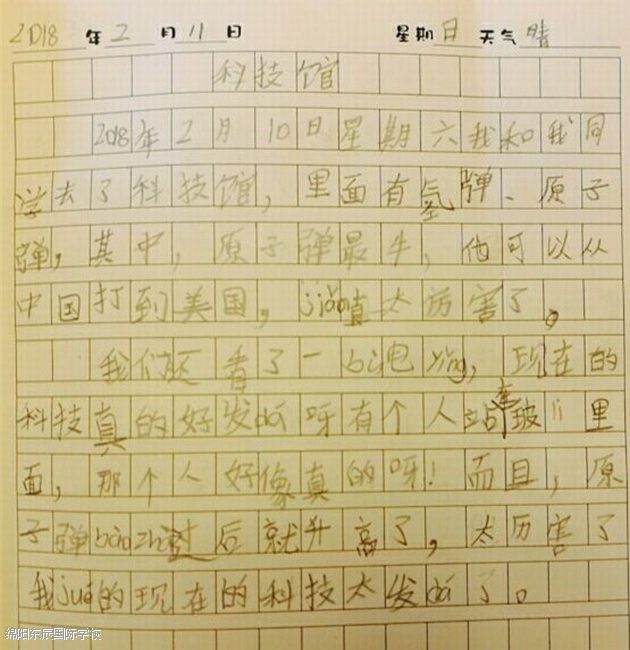 2018 年 2 月 11 日 星期 日 天气 晴
科技馆
2018年2月10日星期六我和我同
学去了科技馆，里面有氢弹、原子
弹，其中，原子弹最牛，他可以从
中国打到美国，jiǎn直太厉害了。
我们还看了一bù电yǐng，现在的
科技真的好发dá呀有个人站在玻lí里
面，那个人好像真的呀！而且，原
子弹bàozhà过后就升高了，太厉害了
我jué的现在的科技太发dá了。
绵阳东辰国际学校